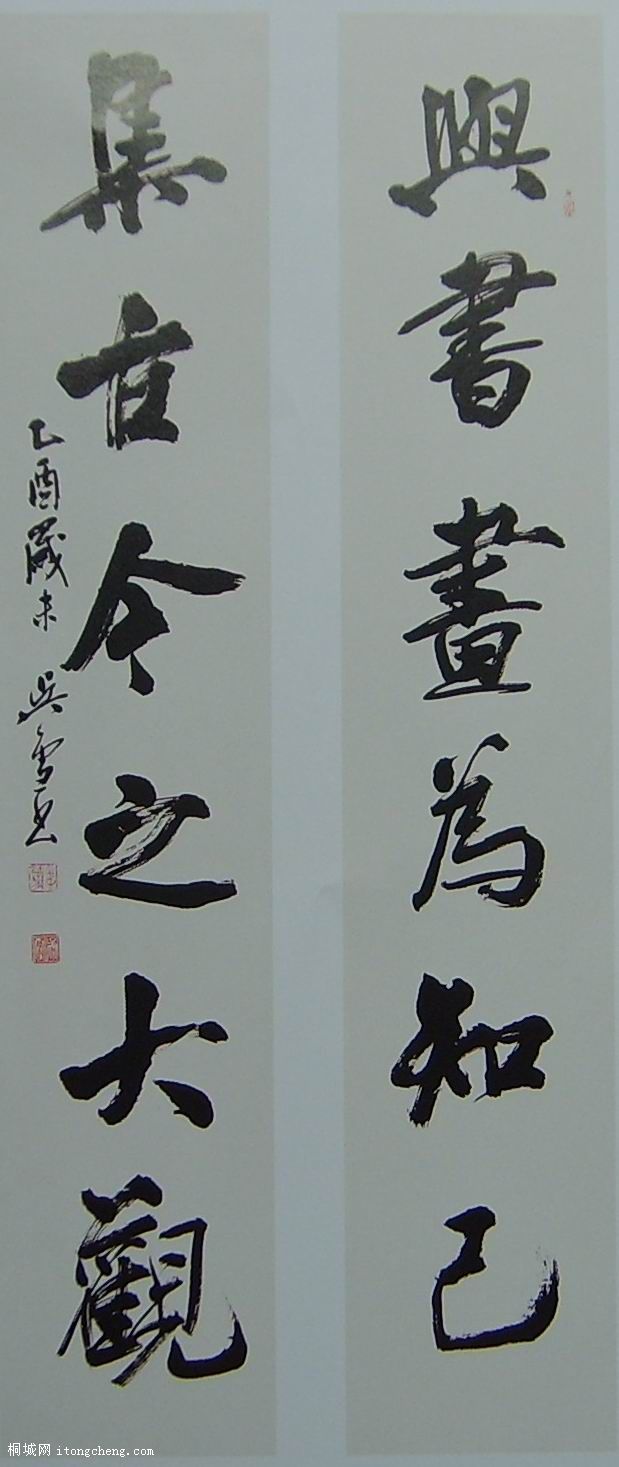 與書畫為知己
集古今之大觀
乙酉歲末 吳雪書
桐城网 itongcheng.com